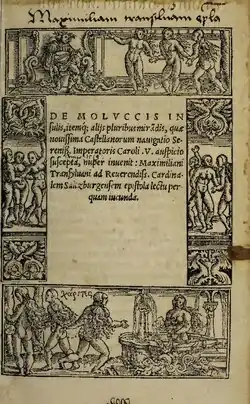 Maximiliani transiluani epla
DE MOLVCCIS IN
sulis, itemq; alijs pluribus mirãdis, quæ
nouissima Castellanorum nauigatio Se-
reniss. Imperatoris Caroli .V. auspicio
suscepta, nuper inuenit: Maximiliani
Transyluani ad Reuerendiss. Cardina-
lem Saltzburgensem epistola lectu per
quam iucunda.